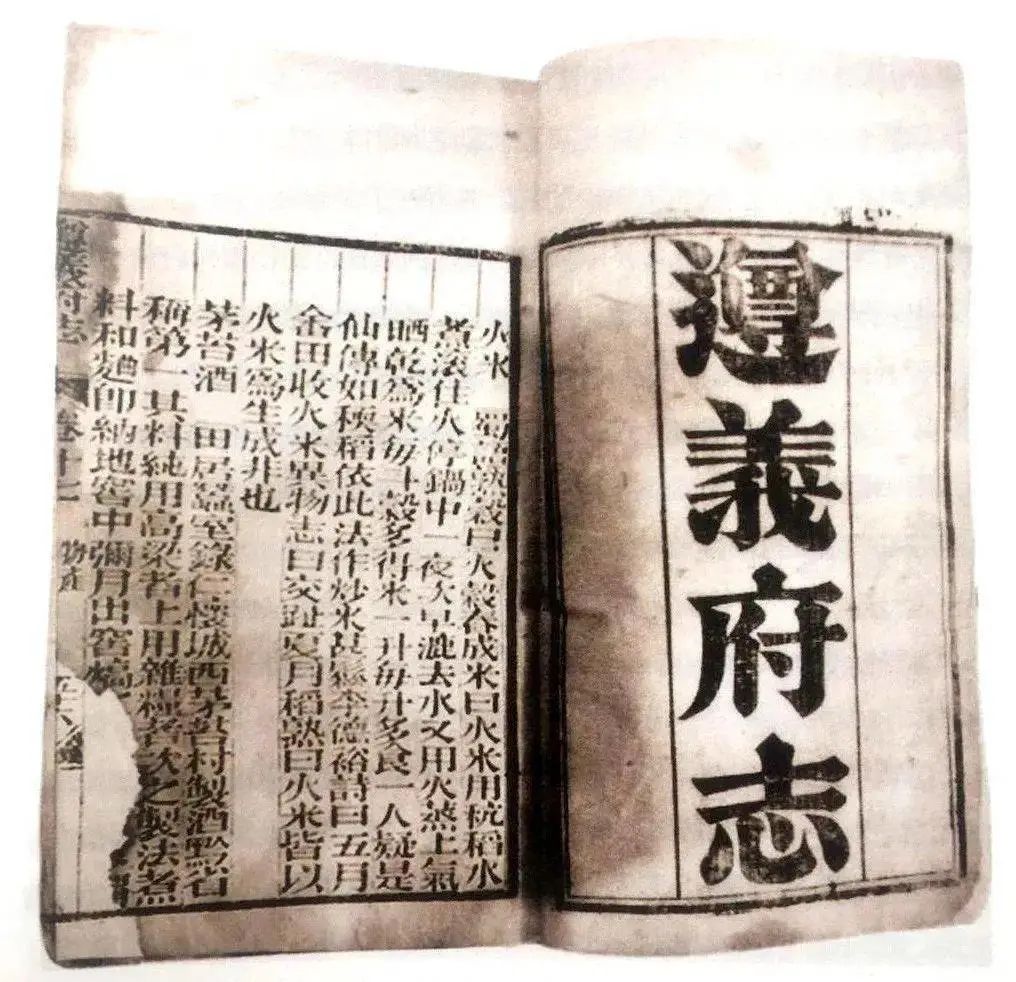 遵義府志
火米　蜀語熟穀曰火穀舂成米曰火米用秔稻水
煮滾住火停鍋中一夜次早漉去水又用火蒸上氣
晒乾爲米每斗穀多得米一升每升多食一人疑是
仙傳如稉稻依此法作炒米甚懸李德裕詩曰五月
畬田收火米異物志曰交趾夏月稻熟曰火米皆以
火米爲生成非也
茅苔酒　田居蠶室錄仁懷城西茅苔村製酒黔省
稱第一其料純用高粱者上用雜糧者次之製法煮
料和麯卽納地窖中彌月出窖熇
遵義府志　卷十七　物產